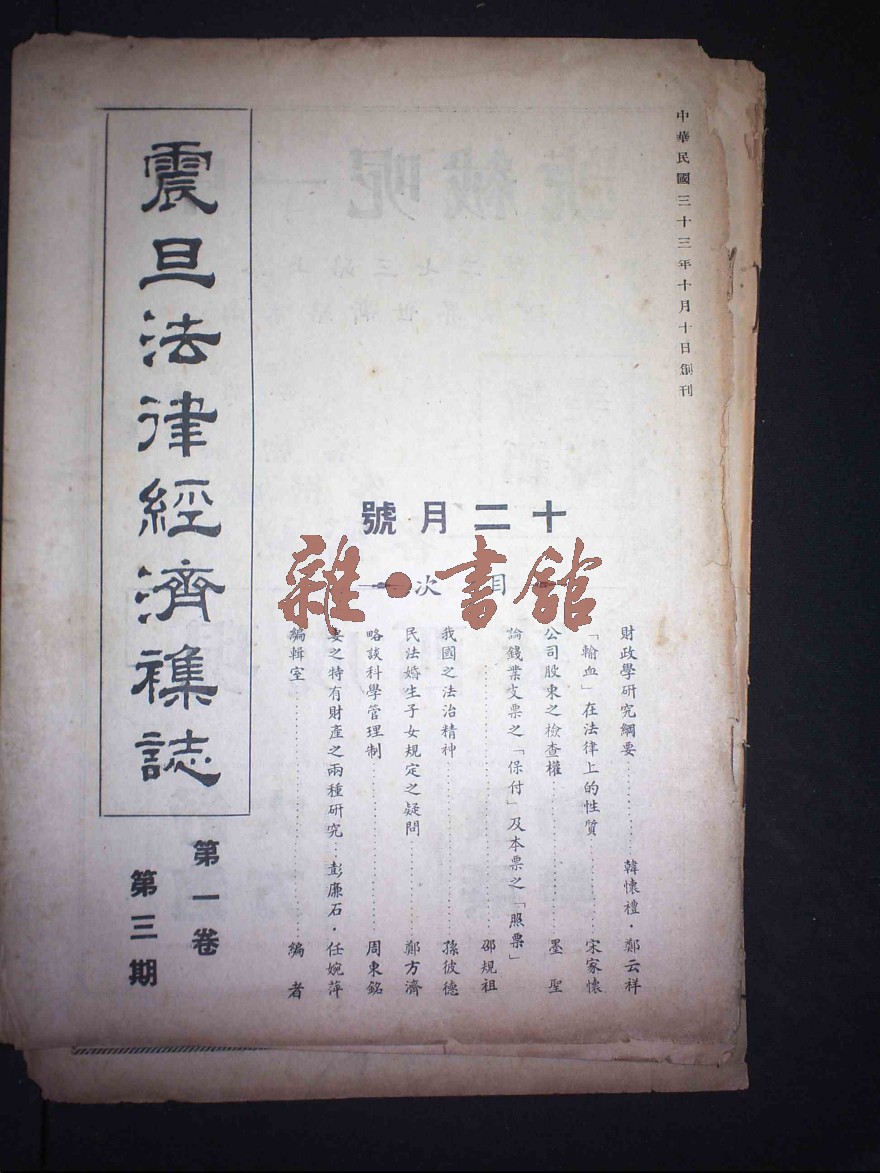 中華民國三十三年十月十日創刊
震旦法律經濟襍誌
第一卷
第三期
十二月號
目次
財政學研究綱要⋯⋯⋯韓懷禮・鄭云祥
「輸血」在法律上的性質⋯⋯⋯宋家懷
公司股東之檢查權⋯⋯⋯墨聖
論錢業支票之「保付」及本票之「照票」
⋯⋯⋯邵規祖
我國之法治精神⋯⋯⋯孫彼德
民法婚生子女規定之疑問⋯⋯⋯鄭方濟
略談科學管理制⋯⋯⋯周東銘
妻之特有財產之兩種研究⋯彭廉石・任婉萍
編輯室⋯⋯⋯編者
雜・書館